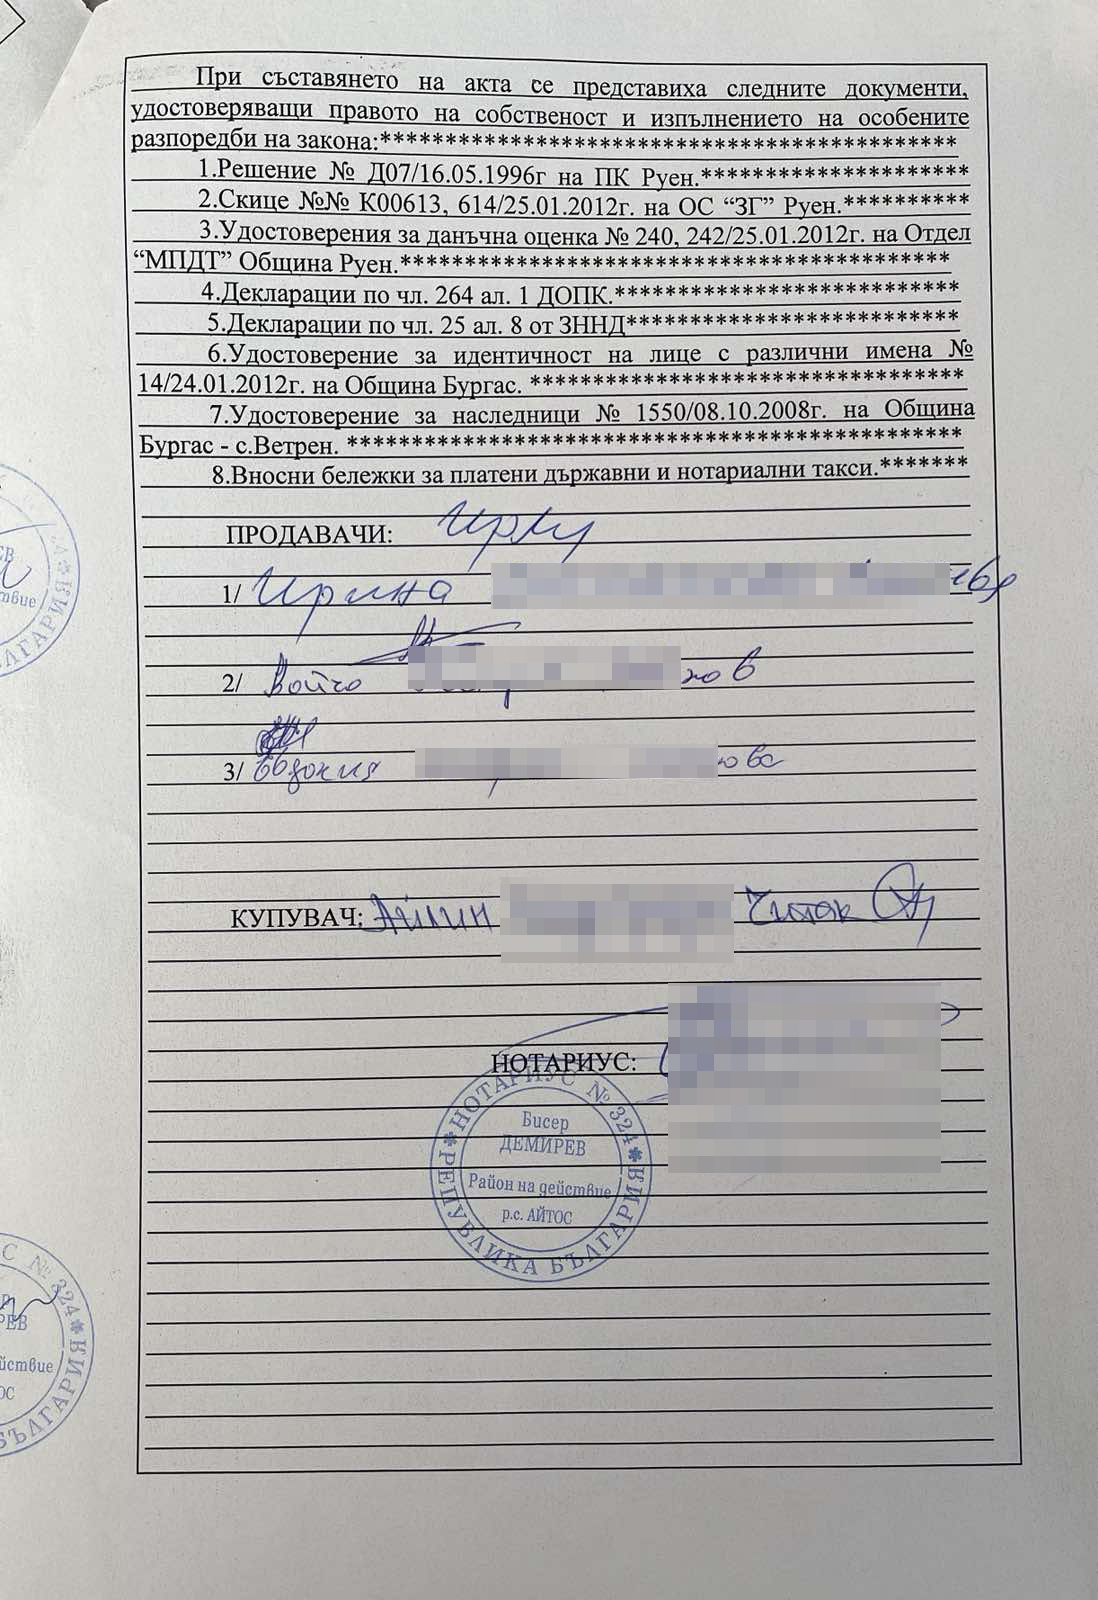 При съставянето на акта се представиха следните документи,
удостоверяващи правото на собственост и изпълнението на особените
разпоредби на закона:*********************************************
1.Решение № Д07/16.05.1996г на ПК Руен.*********************
2.Скице №№ К00613, 614/25.01.2012г. на ОС “ЗГ” Руен.**********
3.Удостоверения за данъчна оценка № 240, 242/25.01.2012г. на Отдел
“МПДТ” Община Руен.*******************************************
4.Декларации по чл. 264 ал. 1 ДОПК.***************************
5.Декларации по чл. 25 ал. 8 от ЗННД**************************
6.Удостоверение за идентичност на лице с различни имена №
14/24.01.2012г. на Община Бургас. **********************************
7.Удостоверение за наследници № 1550/08.10.2008г. на Община
Бургас - с.Ветрен. ************************************************
8.Вносни бележки за платени държавни и нотариални такси.*******
ПРОДАВАЧИ:
1/ Ирина
2/ Войчо
3/ Евдокия
КУПУВАЧ: Айлин Читак
НОТАРИУС:
НОТАРИУС № 324
Бисер
ДЕМИРЕВ
Район на действие
р.с. АЙТОС
РЕПУБЛИКА БЪЛГАРИЯ